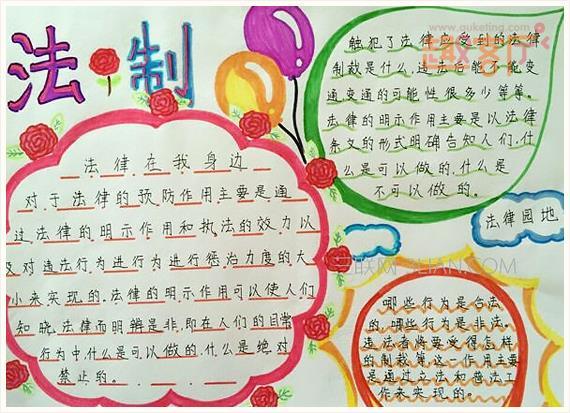 法制
法律在我身边
对于法律的预防作用主要是通
过法律的明示作用和执法的效力以
及对违法行为进行为进行惩治力度的大
小来实现的.法律的明示作用可以使人们
知晓.法律而明辨是非,即在人们的日常
行为中.什么是可以做的.什么是绝对
禁止的。
www.guketing.com
触犯了法律应受到的法律
制裁是什么.违法后能不能变
通.变通的可能性很多少等等。
法律的明示作用主要是以法律
条文的形式明确告知人们.什
么是可以做的.什么是
不可以做的。
法律园地
哪些行为是合法
的.哪些行为是非法.
违法者将要受得怎样
的制裁等.这一作用主要
是通过立法和普法工
作来实现的。